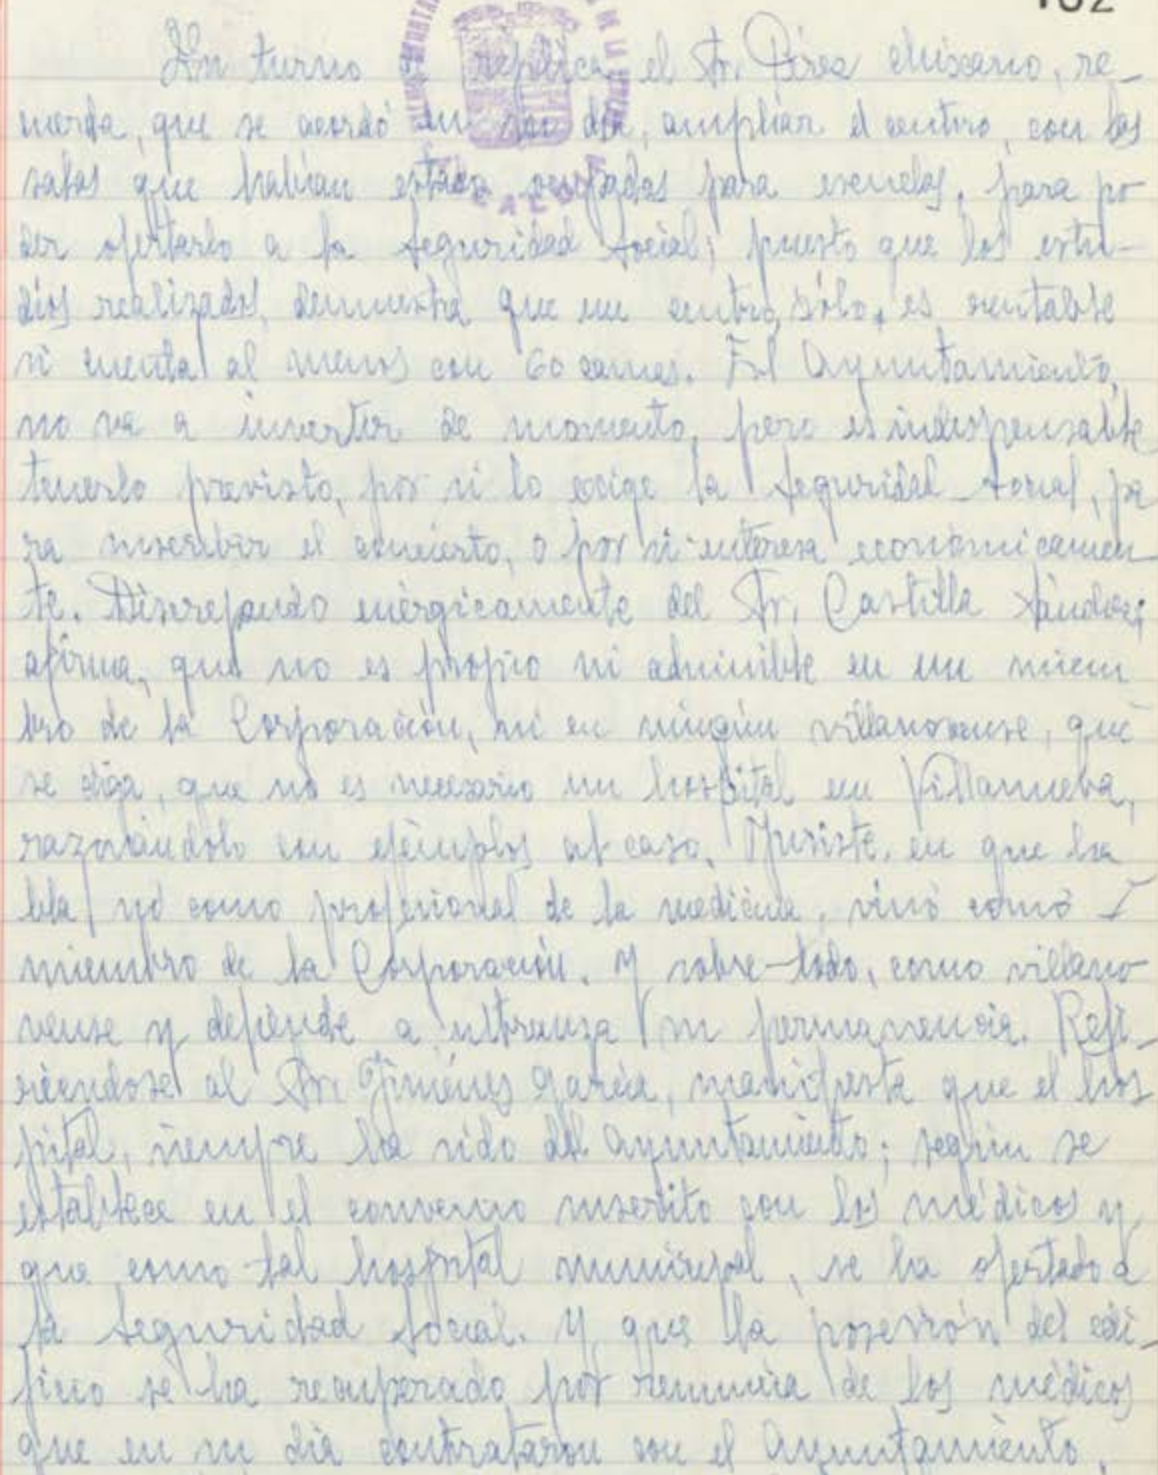 162
En turno de réplica, el Sr. Pérez Chiscano, re-
cuerda, que se acordó en su día, ampliar el centro, con las
salas que habían estado ocupadas para escuelas, para po
der ofertarlo a la Seguridad Social; puesto que los estu-
dios realizados, demuestra que un centro, sólo, es rentable
si cuenta al menos con 60 camas. El Ayuntamiento,
no va a invertir de momento, pero es indispensable
tenerlo previsto, por si lo exige la Seguridad Social, pa
ra suscribir el concierto, o por si interesa económicamen
te. Discrepando enérgicamente del Sr. Castilla Sánchez;
afirma, que no es propio ni admisible en un miem
bro de la Corporación, ni en ningún villanovense, que
se diga, que no es necesario un hospital en Villanueva,
razonándolo con ejemplos al caso. Insiste, en que ha
bla no como profesional de la medicina, sinó como
miembro de la Corporación. Y sobre-todo, como villano
vense y defiende a ultranza su permanencia. Refi-
riéndose al Sr. Jiménez García, manifiesta que el hos
pital, siempre ha sido del Ayuntamiento; según se
establece en el convenio suscrito con los médicos y
que como tal hospital municipal, se ha ofertado a
la Seguridad Social. Y que la posesión del edi-
ficio se ha recuperado por renuncia de los médicos
que en su día contrataron con el Ayuntamiento.